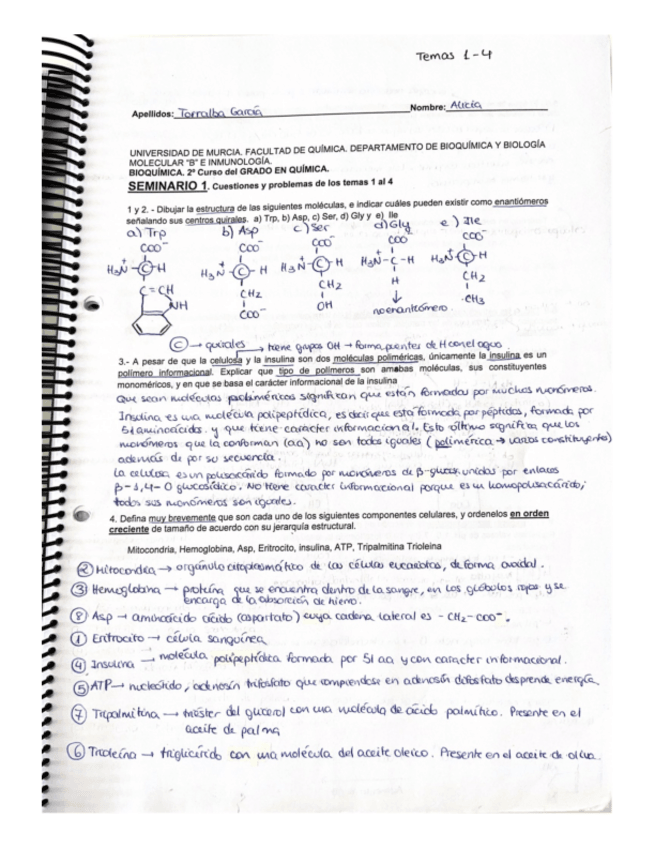 Temas 1-4
Apellidos: Torralba García Nombre: Alicia
UNIVERSIDAD DE MURCIA. FACULTAD DE QUÍMICA. DEPARTAMENTO DE BIOQUÍMICA Y BIOLOGÍA
MOLECULAR "B" E INMUNOLOGÍA.
BIOQUÍMICA. 2º Curso del GRADO EN QUÍMICA.
SEMINARIO 1. Cuestiones y problemas de los temas 1 al 4
1 y 2. - Dibujar la estructura de las siguientes moléculas, e indicar cuáles pueden existir como enantiómeros
señalando sus centros quirales. a) Trp, b) Asp, c) Ser, d) Gly y e) Ile
a) Trp b) Asp c) Ser d) Gly e) Ile
COO⁻ COO⁻ COO⁻ COO⁻ COO⁻
H₃N⁺-C-H H₃N⁺-C-H H₃N⁺-C-H H₃N⁺-C-H H₃N⁺-C-H
C=CH CH₂ CH₂ H CH₂
NH COO⁻ OH ↓ CH₃
no enantiómero
C → quirales → tiene grupos OH → forma puentes de H con el agua
3.- A pesar de que la celulosa y la insulina son dos moléculas poliméricas, únicamente la insulina es un
polímero informacional. Explicar que tipo de polímeros son ambas moléculas, sus constituyentes
monoméricos, y en que se basa el carácter informacional de la insulina
Que sean moléculas poliméricas significan que están formadas por muchos monómeros.
Insulina es una molécula polipeptídica, es decir que está formada por péptidos, formada por
51 aminoácidos. y que tiene carácter informacional. Esto último significa que los
monómeros que la conforman (aa) no son todos iguales (polimérica → varios constituyentes)
además de por su secuencia.
La celulosa es un polisacárido formado por monómeros de β-glucosa unidas por enlaces
β-1,4-O glucosídico. No tiene carácter informacional porque es un homopolisacárido,
todos sus monómeros son iguales.
4. Defina muy brevemente que son cada uno de los siguientes componentes celulares, y ordenelos en orden
creciente de tamaño de acuerdo con su jerarquía estructural.
Mitocondria, Hemoglobina, Asp, Eritrocito, insulina, ATP, Tripalmitina Trioleina
② Mitocondria → orgánulo citoplasmático de las células eucariotas, de forma ovoidal.
③ Hemoglobina → proteína que se encuentra dentro de la sangre, en los glóbulos rojos y se
encarga de la absorción de hierro.
⑧ Asp → aminoácido ácido (aspartato) cuya cadena lateral es -CH₂-COO⁻.
① Eritrocito → célula sanguínea
④ Insulina → molécula polipeptídica formada por 51 aa y con caracter informacional.
⑤ ATP → nucleótido, adenosín trifosfato que rompiendose en adenosín difosfato desprende energía.
⑦ Tripalmitina → triéster del glicerol con una molécula de ácido palmítico. Presente en el
aceite de palma
⑥ Trioleína → triglicérido con una molécula del aceite oleico. Presente en el aceite de oliva.